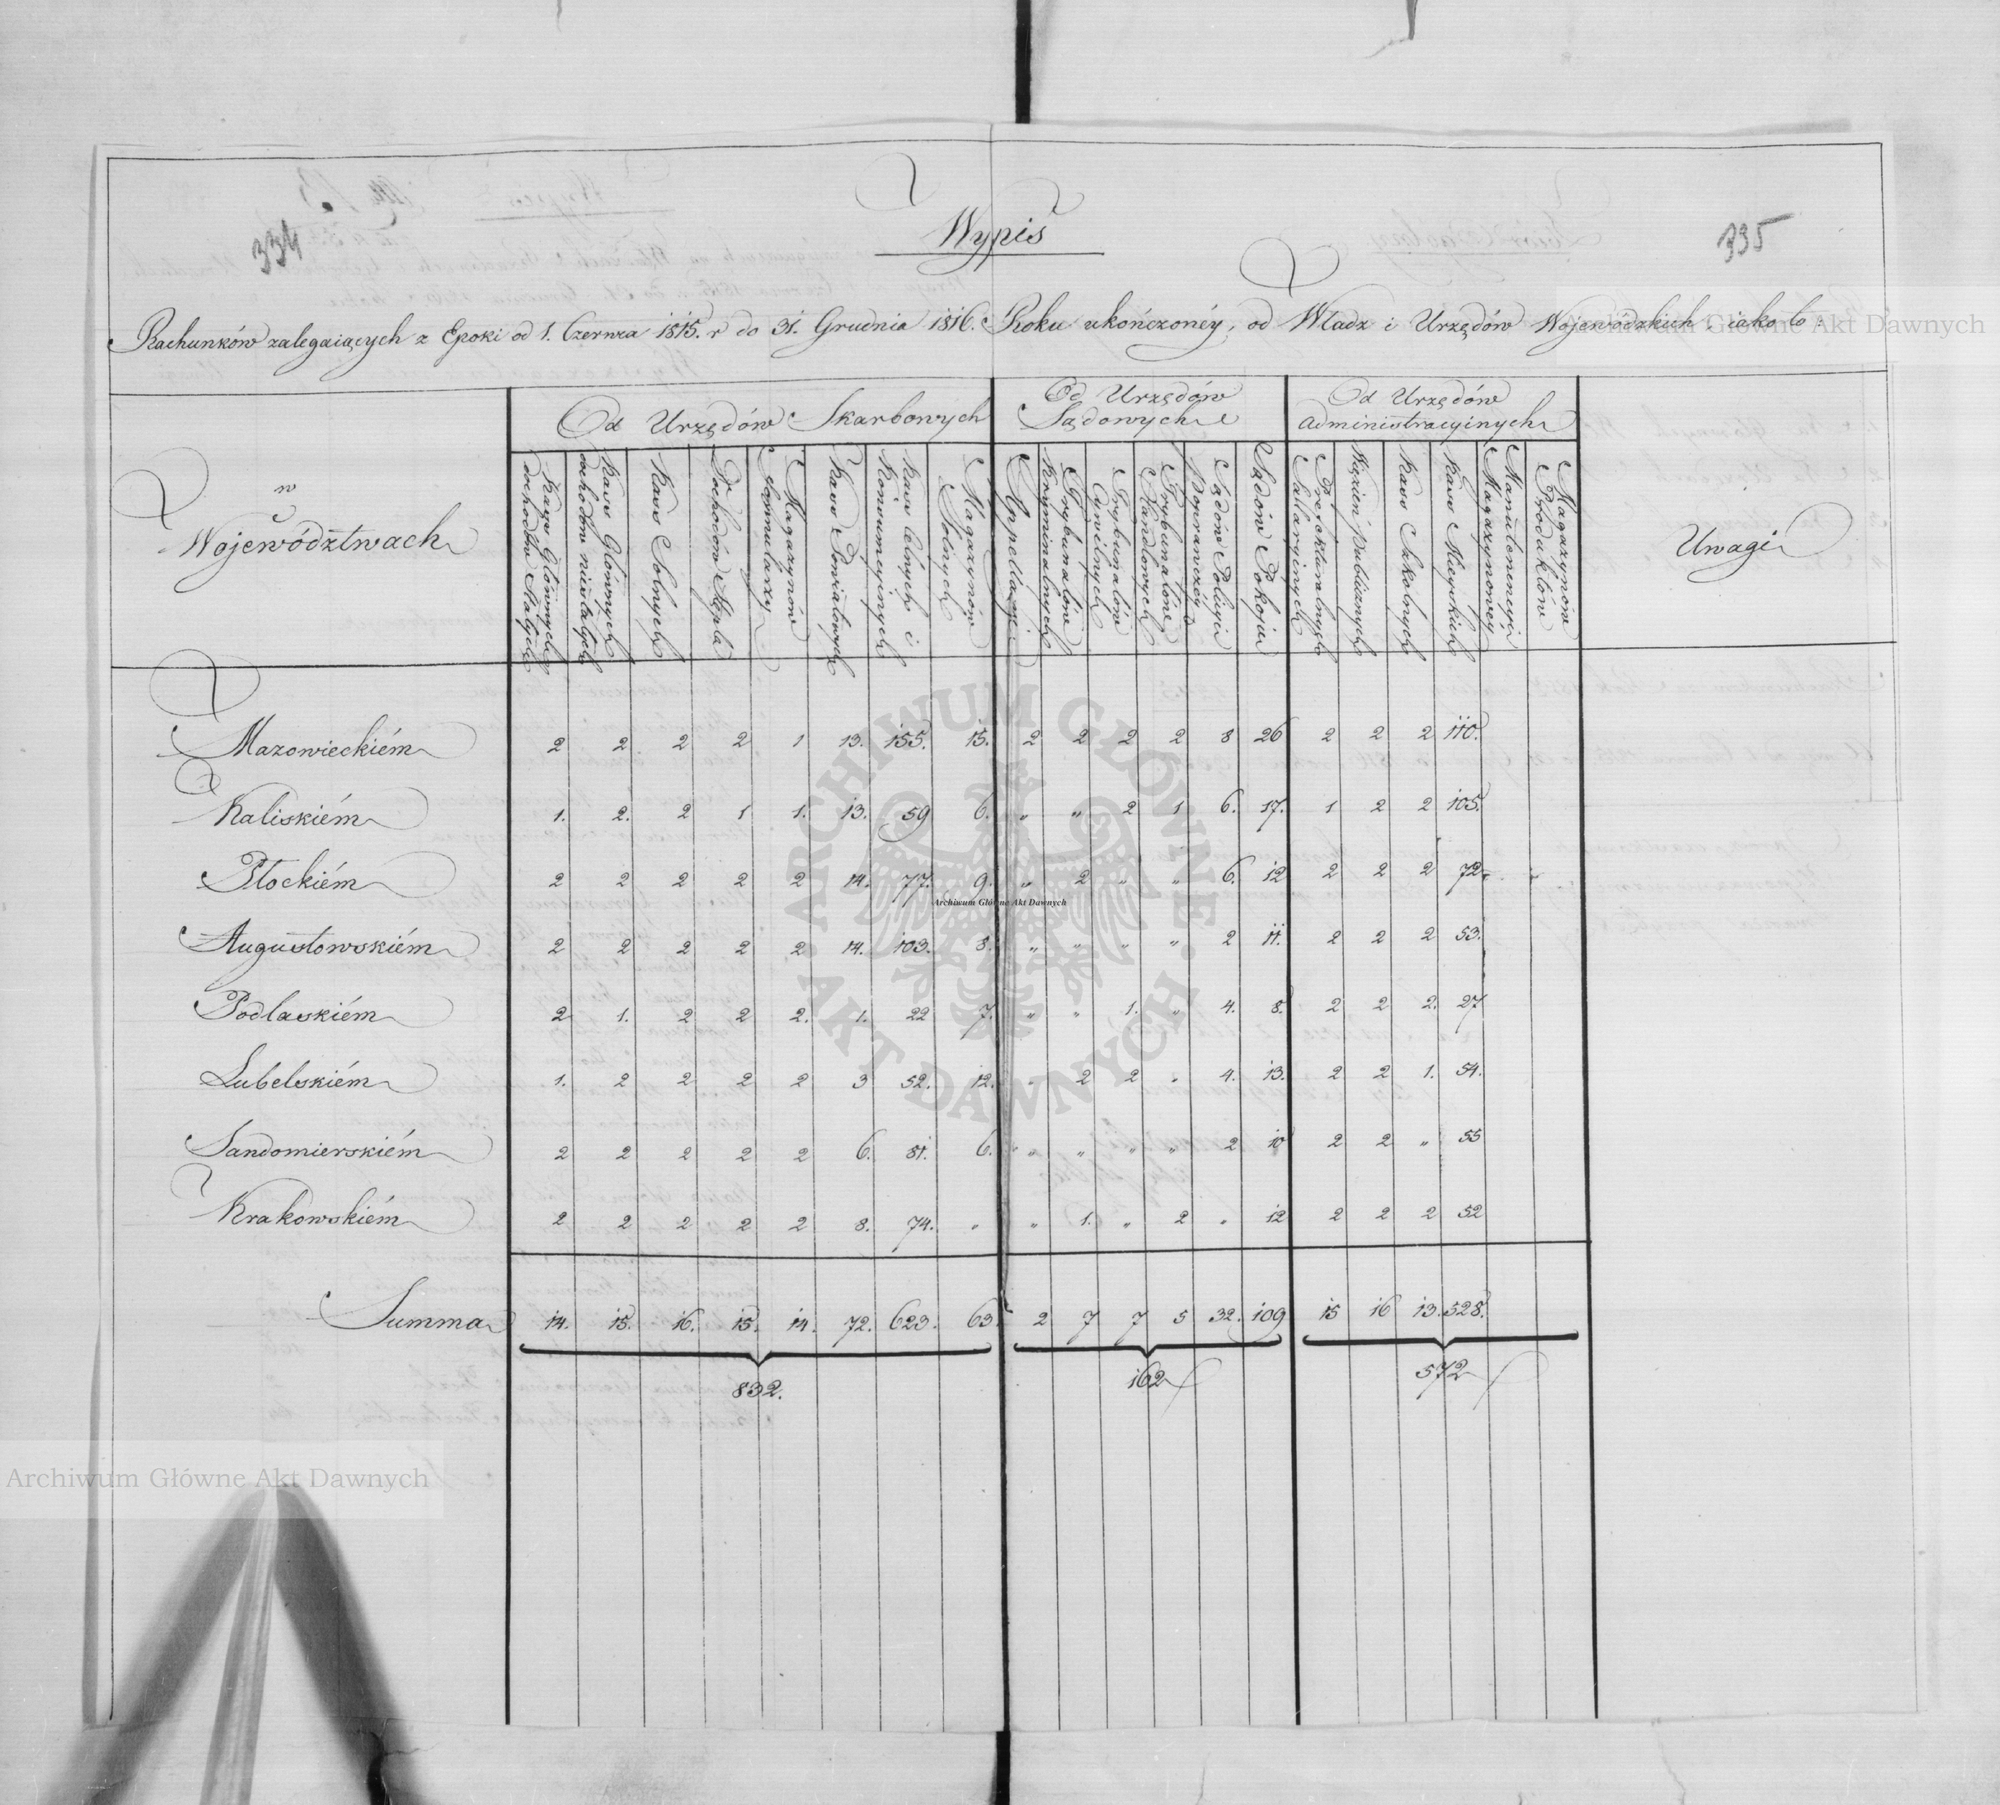 334
335
Wypis
Rachunków zalegaiących z Epoki od 1. Czerwca 1815. r do 31. Grudnia 1816. Roku ukończonéy, od Władz i Urzędów Woiewódzkich, iako to:
w Województwach
Od Urzędów Skarbowych
Od Urzędów Sądowych
Od Urzędów Administracyinych
Uwagi
Kass Głównych dochodów stałych
Kass Głównych dochodów niestałych
Kass Solnych
Dochodów Stępla
Magazynów Formularzy
Kass Powiatowych
Kass Celnych i Konsumcyinych
Magazynów Solnych
Appellacyi
Trybunałów Kryminalnych
Trybunałów Cywilnych
Trybunałów Handlowych
Sądów Policyi Poprawczéy
Sądów Pokoju
Prefekturalnych Sallaryinych
Więzień Publicznych
Kass Szkolnych
Kass Mieyskich
Manutenencyi Magazynowey
Magazynów Produktów
Mazowieckiém 2 2 2 2 1 13. 155. 15. 2 2 2 2 8 26 2 2 2 110.
Kaliskiém 1. 2. 2 1 1. 13. 59 6. " " 2 1 6. 17. 1 2 2 105.
Płockiém 2 2 2 2 2 14. 77. 9. " 2 " " 6. 12 2 2 2 72 " "
Augustowskiém 2 2 2 2 2 14. 103. 8. " " " " 2 11. 2 2 2 53.
Podlaskiém 2 1. 2 2 2. 1. 22 7. " " 1. " 4. 8. 2 2 2. 27
Lubelskiém 1. 2 2 2 2 3 52. 12. " 2 2 " 4. 13. 2 2 1. 54.
Sandomierskiém 2 2 2 2 2 6. 81. 6. " " " " 2 10 2 2 " 55
Krakowskiém 2 2 2 2 2 8. 74. " " 1. " 2 " 12 2 2 2 52
Summa 14. 15. 16. 15. 14. 72. 623. 63. 2 7 7 5 32. 109 15 16 13. 528.
832. 162 572
Archiwum Główne Akt Dawnych
Archiwum Główne Akt Dawnych
Archiwum Główne Akt Dawnych
ARCHIWUM GŁÓWNE • AKT DAWNYCH •